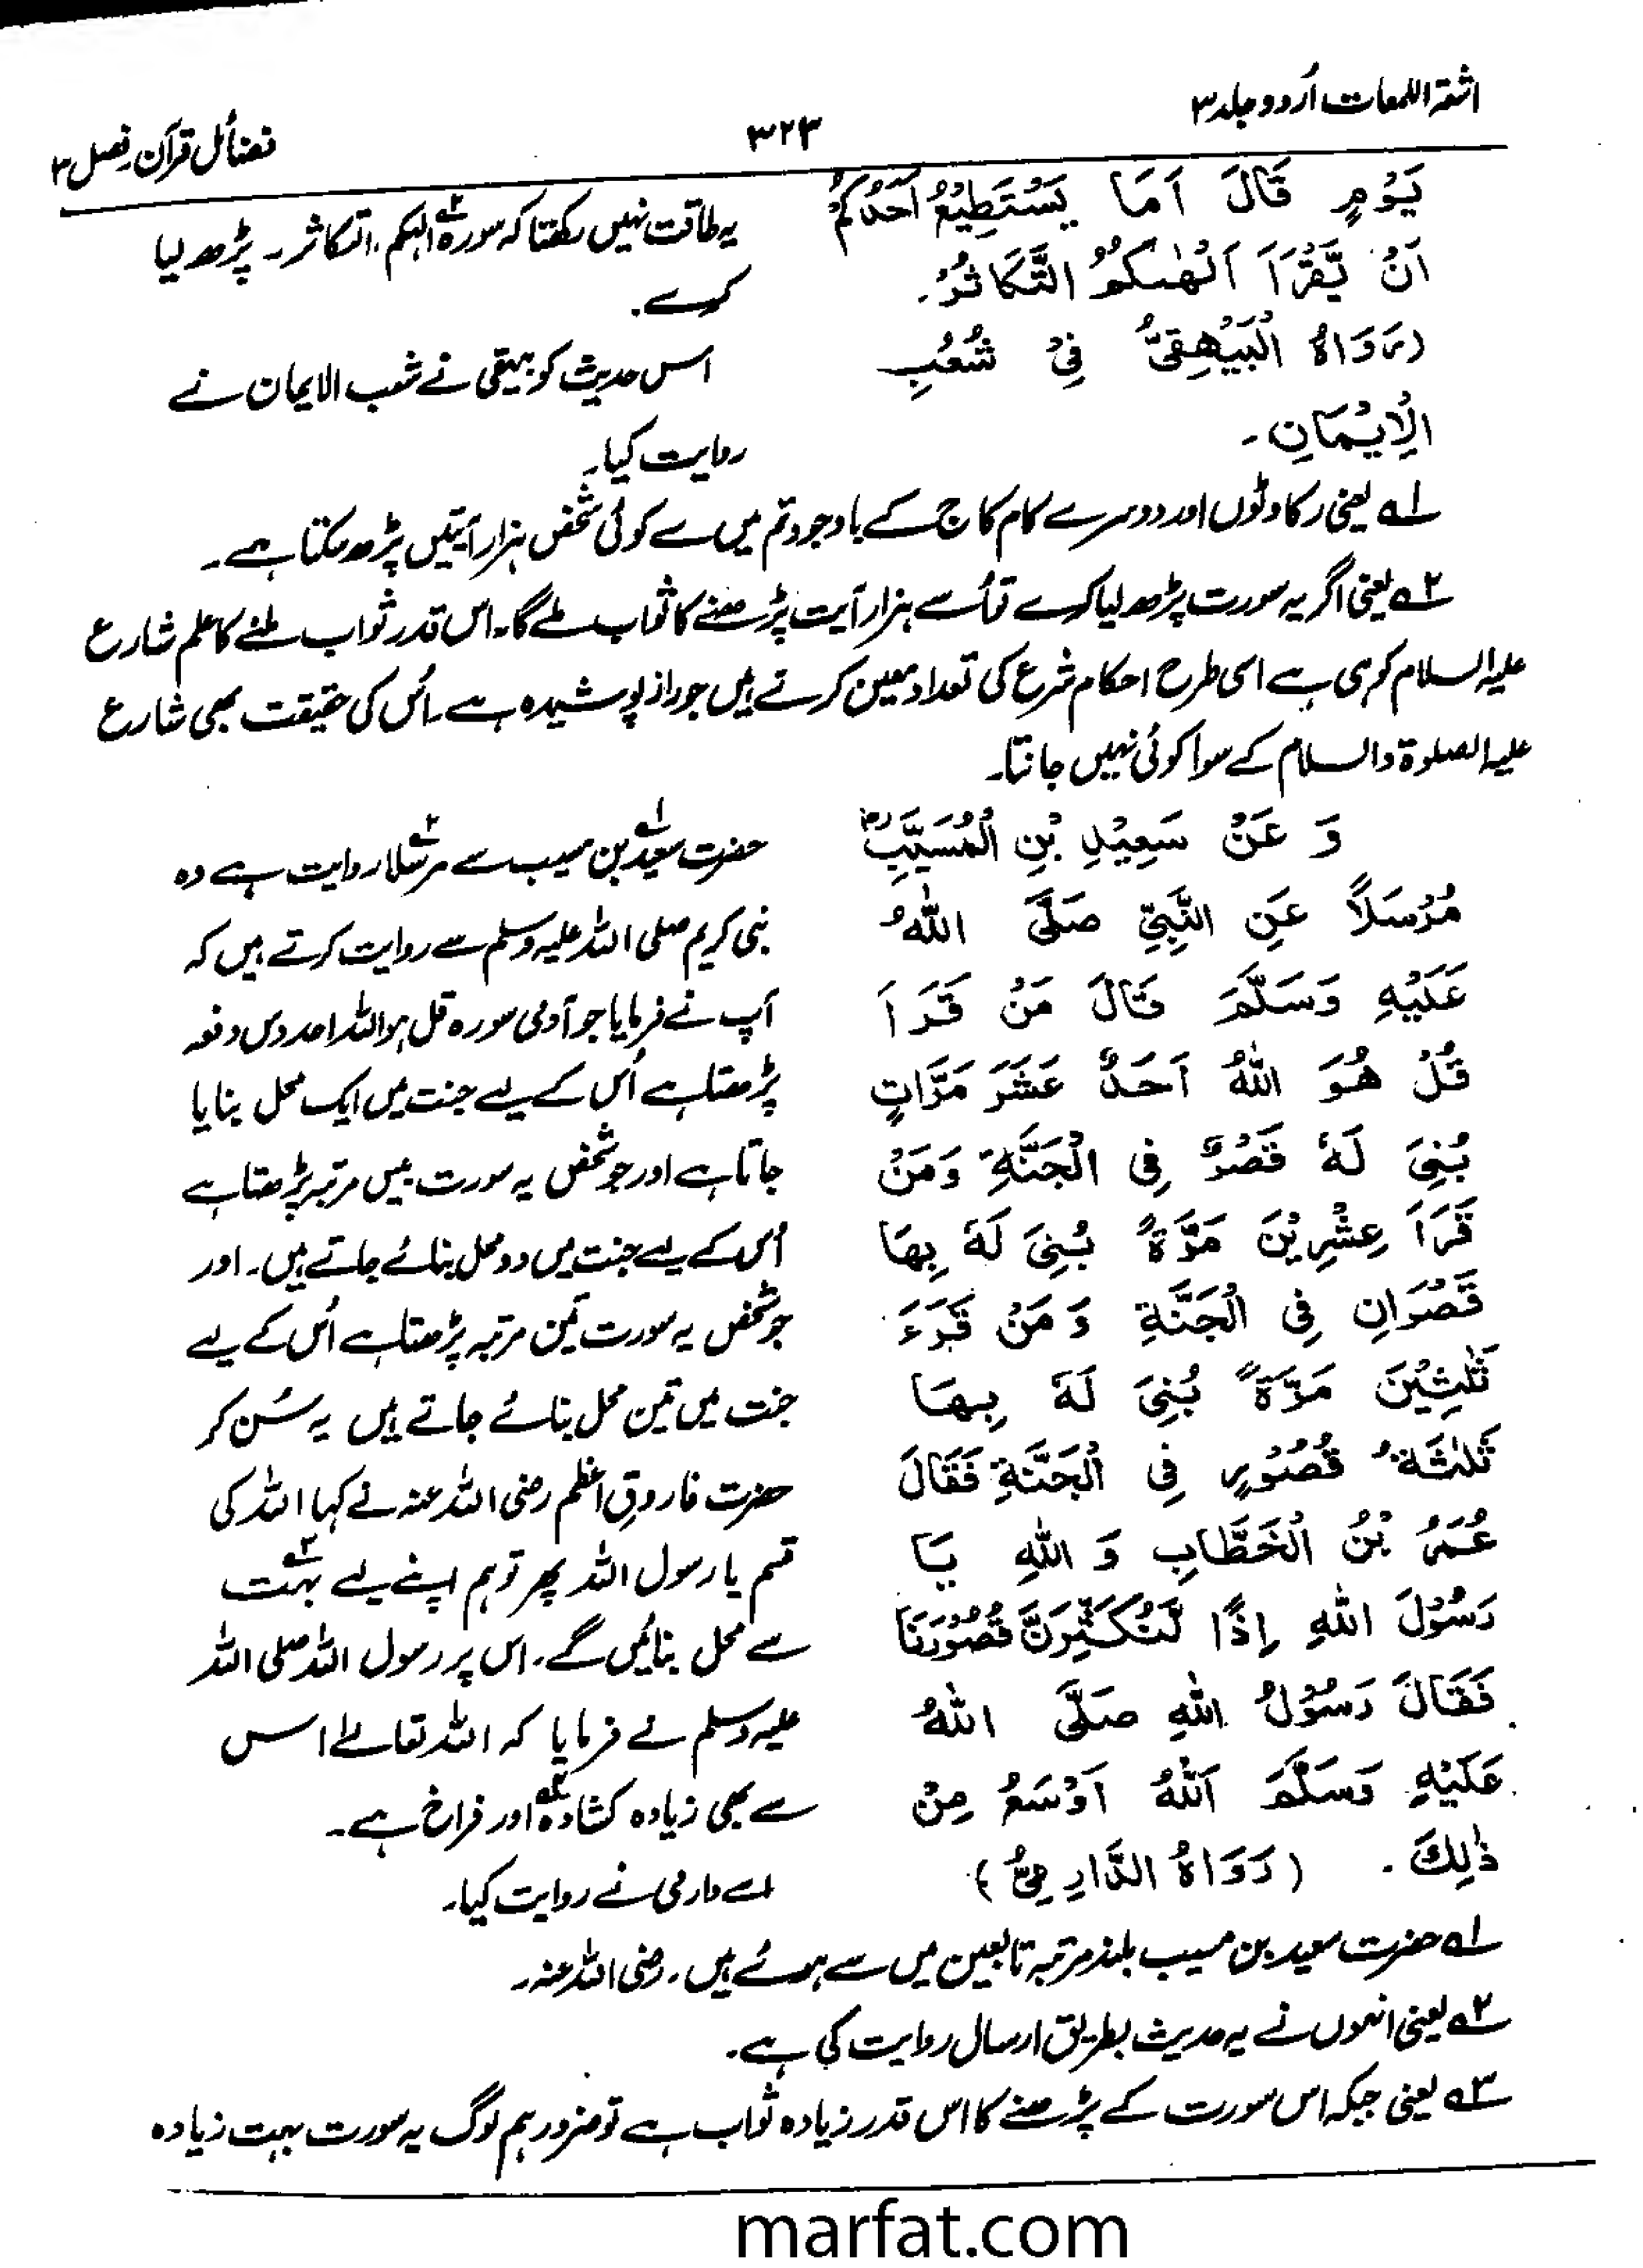 اشعۃ اللمعات اُردو جلد ۳
۳۲۳
فضائل قرآن فصل ۳
يَوْمٍ قَالَ اَمَا يَسْتَطِيْعُ اَحَدُكُمْ
اَنْ يَّقْرَاَ اَلْهٰىكُمُ التَّكَاثُرُ۔
(رَوَاهُ الْبَيْهَقِىُّ فِىْ شُعَبِ
الْاِيْمَانِ۔
یہ طاقت نہیں رکھتا کہ سورۃ۲ے الہٰکم التکاثر۔ پڑھ لیا
کرے۔
اس حدیث کو بیہقی نے شعب الایمان نے
روایت کیا۔
۱ے یعنی رکاوٹوں اور دوسرے کام کاج کے باوجود تم میں سے کوئی شخص ہزار آیتیں پڑھ سکتا ہے۔
۲ے یعنی اگر یہ سورت پڑھ لیا کرے تو اُسے ہزار آیت پڑھنے کا ثواب ملے گا۔ اس قدر ثواب ملنے کا علم شارع
علیہ السلام کو ہی ہے اسی طرح احکام شرع کی تعداد معین کرنے میں جو راز پوشیدہ ہے۔ اُس کی حقیقت بھی شارع
علیہ الصلوۃ والسلام کے سوا کوئی نہیں جانتا۔
وَ عَنْ سَعِيْدِ بْنِ الْمُسَيَّبِ
مُرْسَلًا عَنِ النَّبِىِّ صَلَّى اللّٰهُ
عَلَيْهِ وَسَلَّمَ قَالَ مَنْ قَرَاَ
قُلْ هُوَ اللّٰهُ اَحَدٌ عَشَرَ مَرَّاتٍ
بُنِىَ لَهٗ قَصْرٌ فِى الْجَنَّةِ وَمَنْ
قَرَاَ عِشْرِيْنَ مَرَّةً بُنِىَ لَهٗ بِهَا
قَصْرَانِ فِى الْجَنَّةِ وَمَنْ قَرَءَ
ثَلٰثِيْنَ مَرَّةً بُنِىَ لَهٗ بِهَا
ثَلٰثَةُ قُصُوْرٍ فِى الْجَنَّةِ فَقَالَ
عُمَرُ بْنُ الْخَطَّابِ وَ اللّٰهِ يَا
رَسُوْلَ اللّٰهِ اِذًا لَّنُكَثِّرَنَّ قُصُوْرَنَا
فَقَالَ رَسُوْلُ اللّٰهِ صَلَّى اللّٰهُ
عَلَيْهِ وَسَلَّمَ اَللّٰهُ اَوْسَعُ مِنْ
ذٰلِكَ۔ (رَوَاهُ الدَّارِمِىُّ)
حضرت سعید۱ے بن مسیب سے مرسلاً۲ے روایت ہے وہ
نبی کریم صلی اللہ علیہ وسلم سے روایت کرتے ہیں کہ
آپ نے فرمایا جو آدمی سورہ قل ہو اللہ احد دس دفعہ
پڑھتا ہے اُس کے لیے جنت میں ایک محل بنایا
جاتا ہے اور جو شخص یہ سورت بیس مرتبہ پڑھتا ہے
اُس کے لیے جنت میں دو محل بنائے جاتے ہیں۔ اور
جو شخص یہ سورت تین مرتبہ پڑھتا ہے اُس کے لیے
جنت میں تین محل بنائے جاتے ہیں یہ سُن کر
حضرت فاروقِ اعظم رضی اللہ عنہ نے کہا اللہ کی
قسم یا رسول اللہ پھر تو ہم اپنے لیے بہت۳ے
سے محل بنائیں گے۔ اس پر رسول اللہ صلی اللہ
علیہ وسلم نے فرمایا کہ اللہ تعالےٰ اس
سے بھی زیادہ کشادہ۴ے اور فراخ ہے۔
اسے دارمی نے روایت کیا۔
۱ے حضرت سعید بن مسیب بلند مرتبہ تابعین میں سے ہوئے ہیں۔ رضی اللہ عنہ۔
۲ے یعنی انہوں نے یہ حدیث بطریق ارسال روایت کی ہے۔
۳ے یعنی جبکہ اس سورت کے پڑھنے کا اس قدر زیادہ ثواب ہے تو ضرور ہم لوگ یہ سورت بہت زیادہ
marfat.com